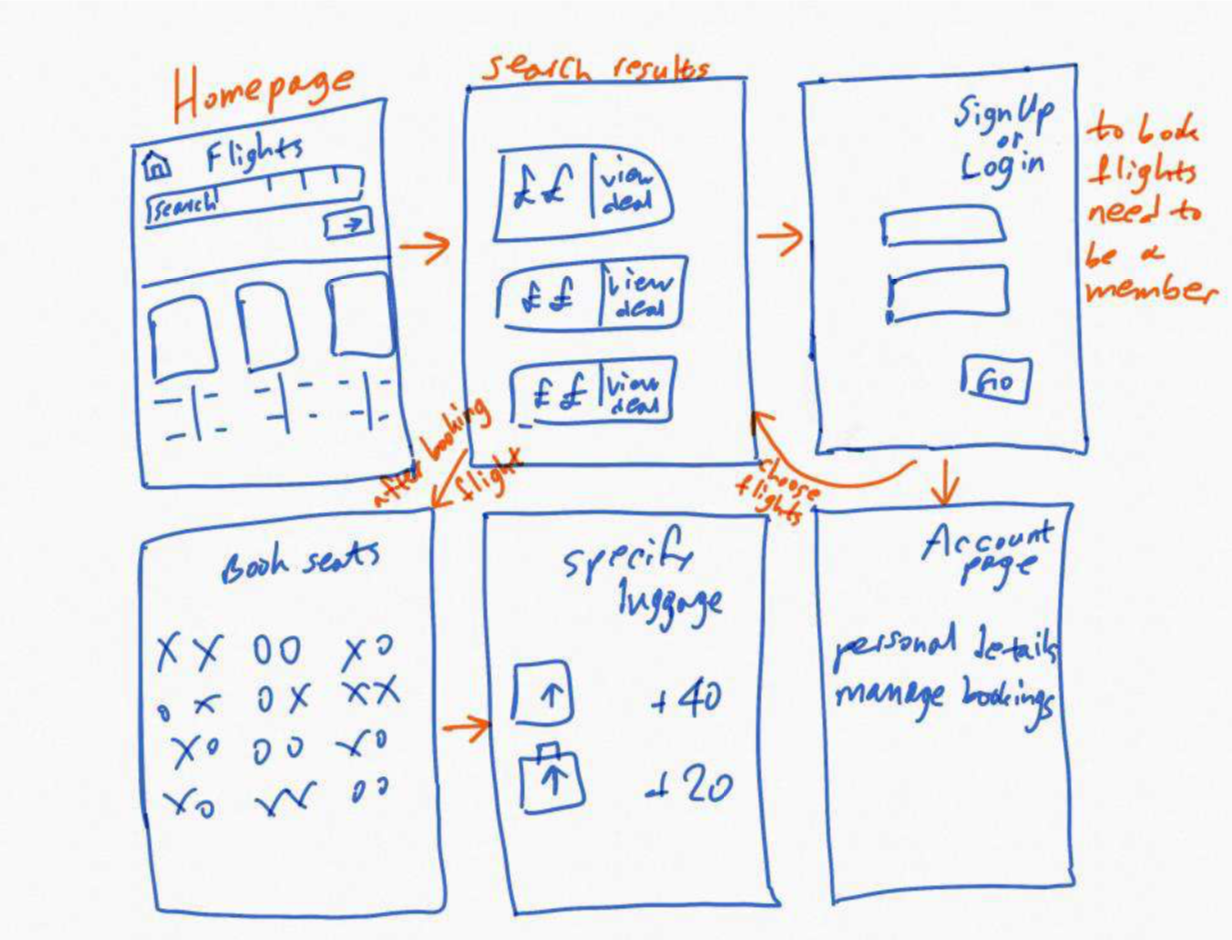 Homepage
Flights
Search
→
search results
££ view
deal
££ view
deal
££ view
deal
Sign Up
or
Login
Go
to book
flights
need to
be a
member
after booking
flight
choose
flights
Book seats
X X OO XO
O X OX XX
XO OO XO
XO XX OO
specify
luggage
↑ +40
↑ +20
Account
page
personal details
manage bookings